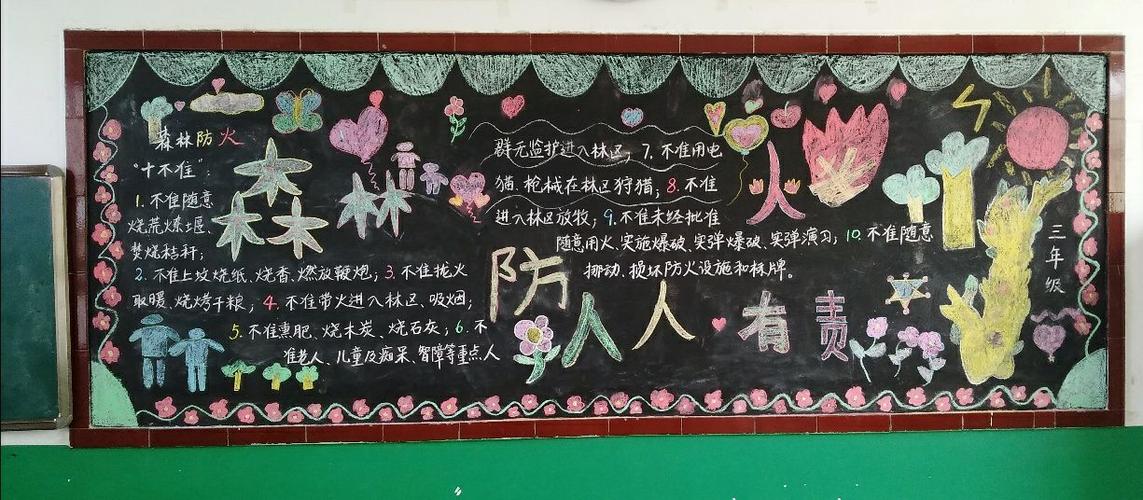 森林防火
"十不准"：
1. 不准随意
烧荒炼土堰、
焚烧秸秆；
2. 不准上坟烧纸、烧香、燃放鞭炮；3. 不准拢火
取暖、烧烤干粮、4. 不准带火进入林区、吸烟；
5. 不准熏肥、烧木炭、烧石灰；6. 不
准老人、儿童及痴呆、智障等重点人
群无监护进入林区；7. 不准用电
猫、枪械在林区狩猎；8. 不准
进入林区放牧；9. 不准未经批准
随意用火、实施爆破、实弹爆破、实弹演习；10. 不准随意
挪动、损坏防火设施和标牌。
森林防火人人有责
三年级